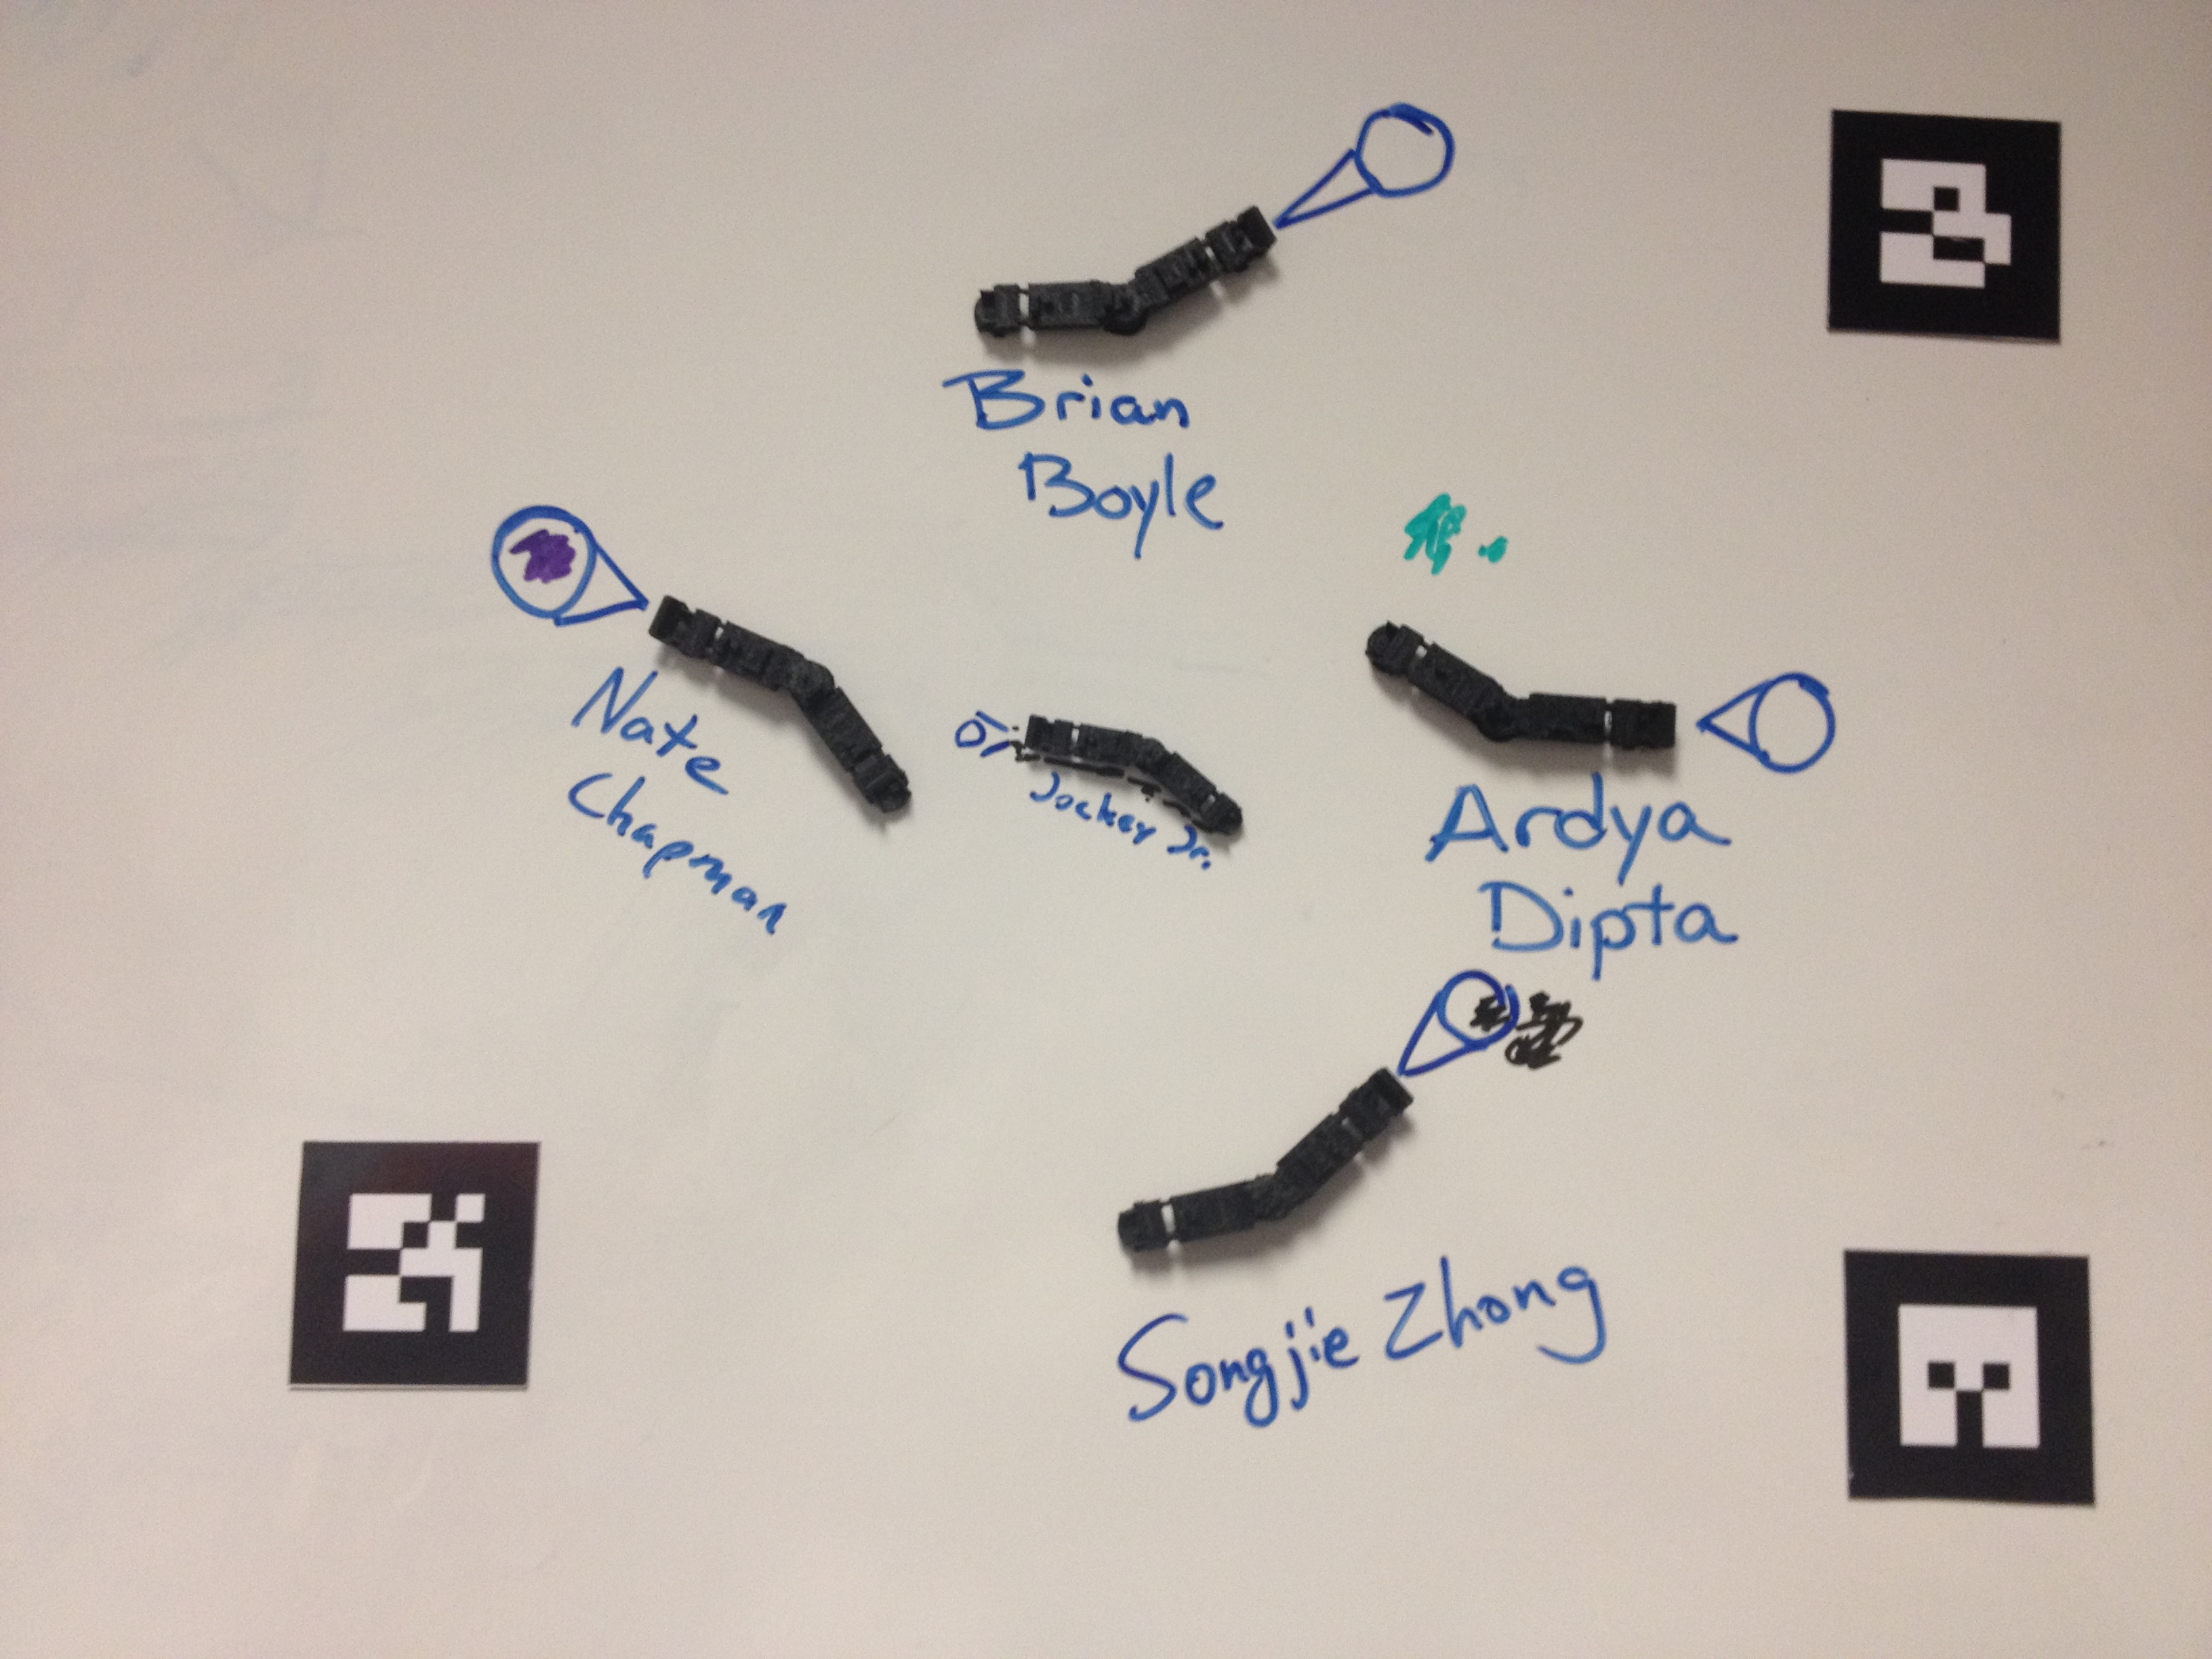 Brian
Boyle
Nate
Chapman
Jockey Jr.
Ardya
Dipta
Songjie Zhong